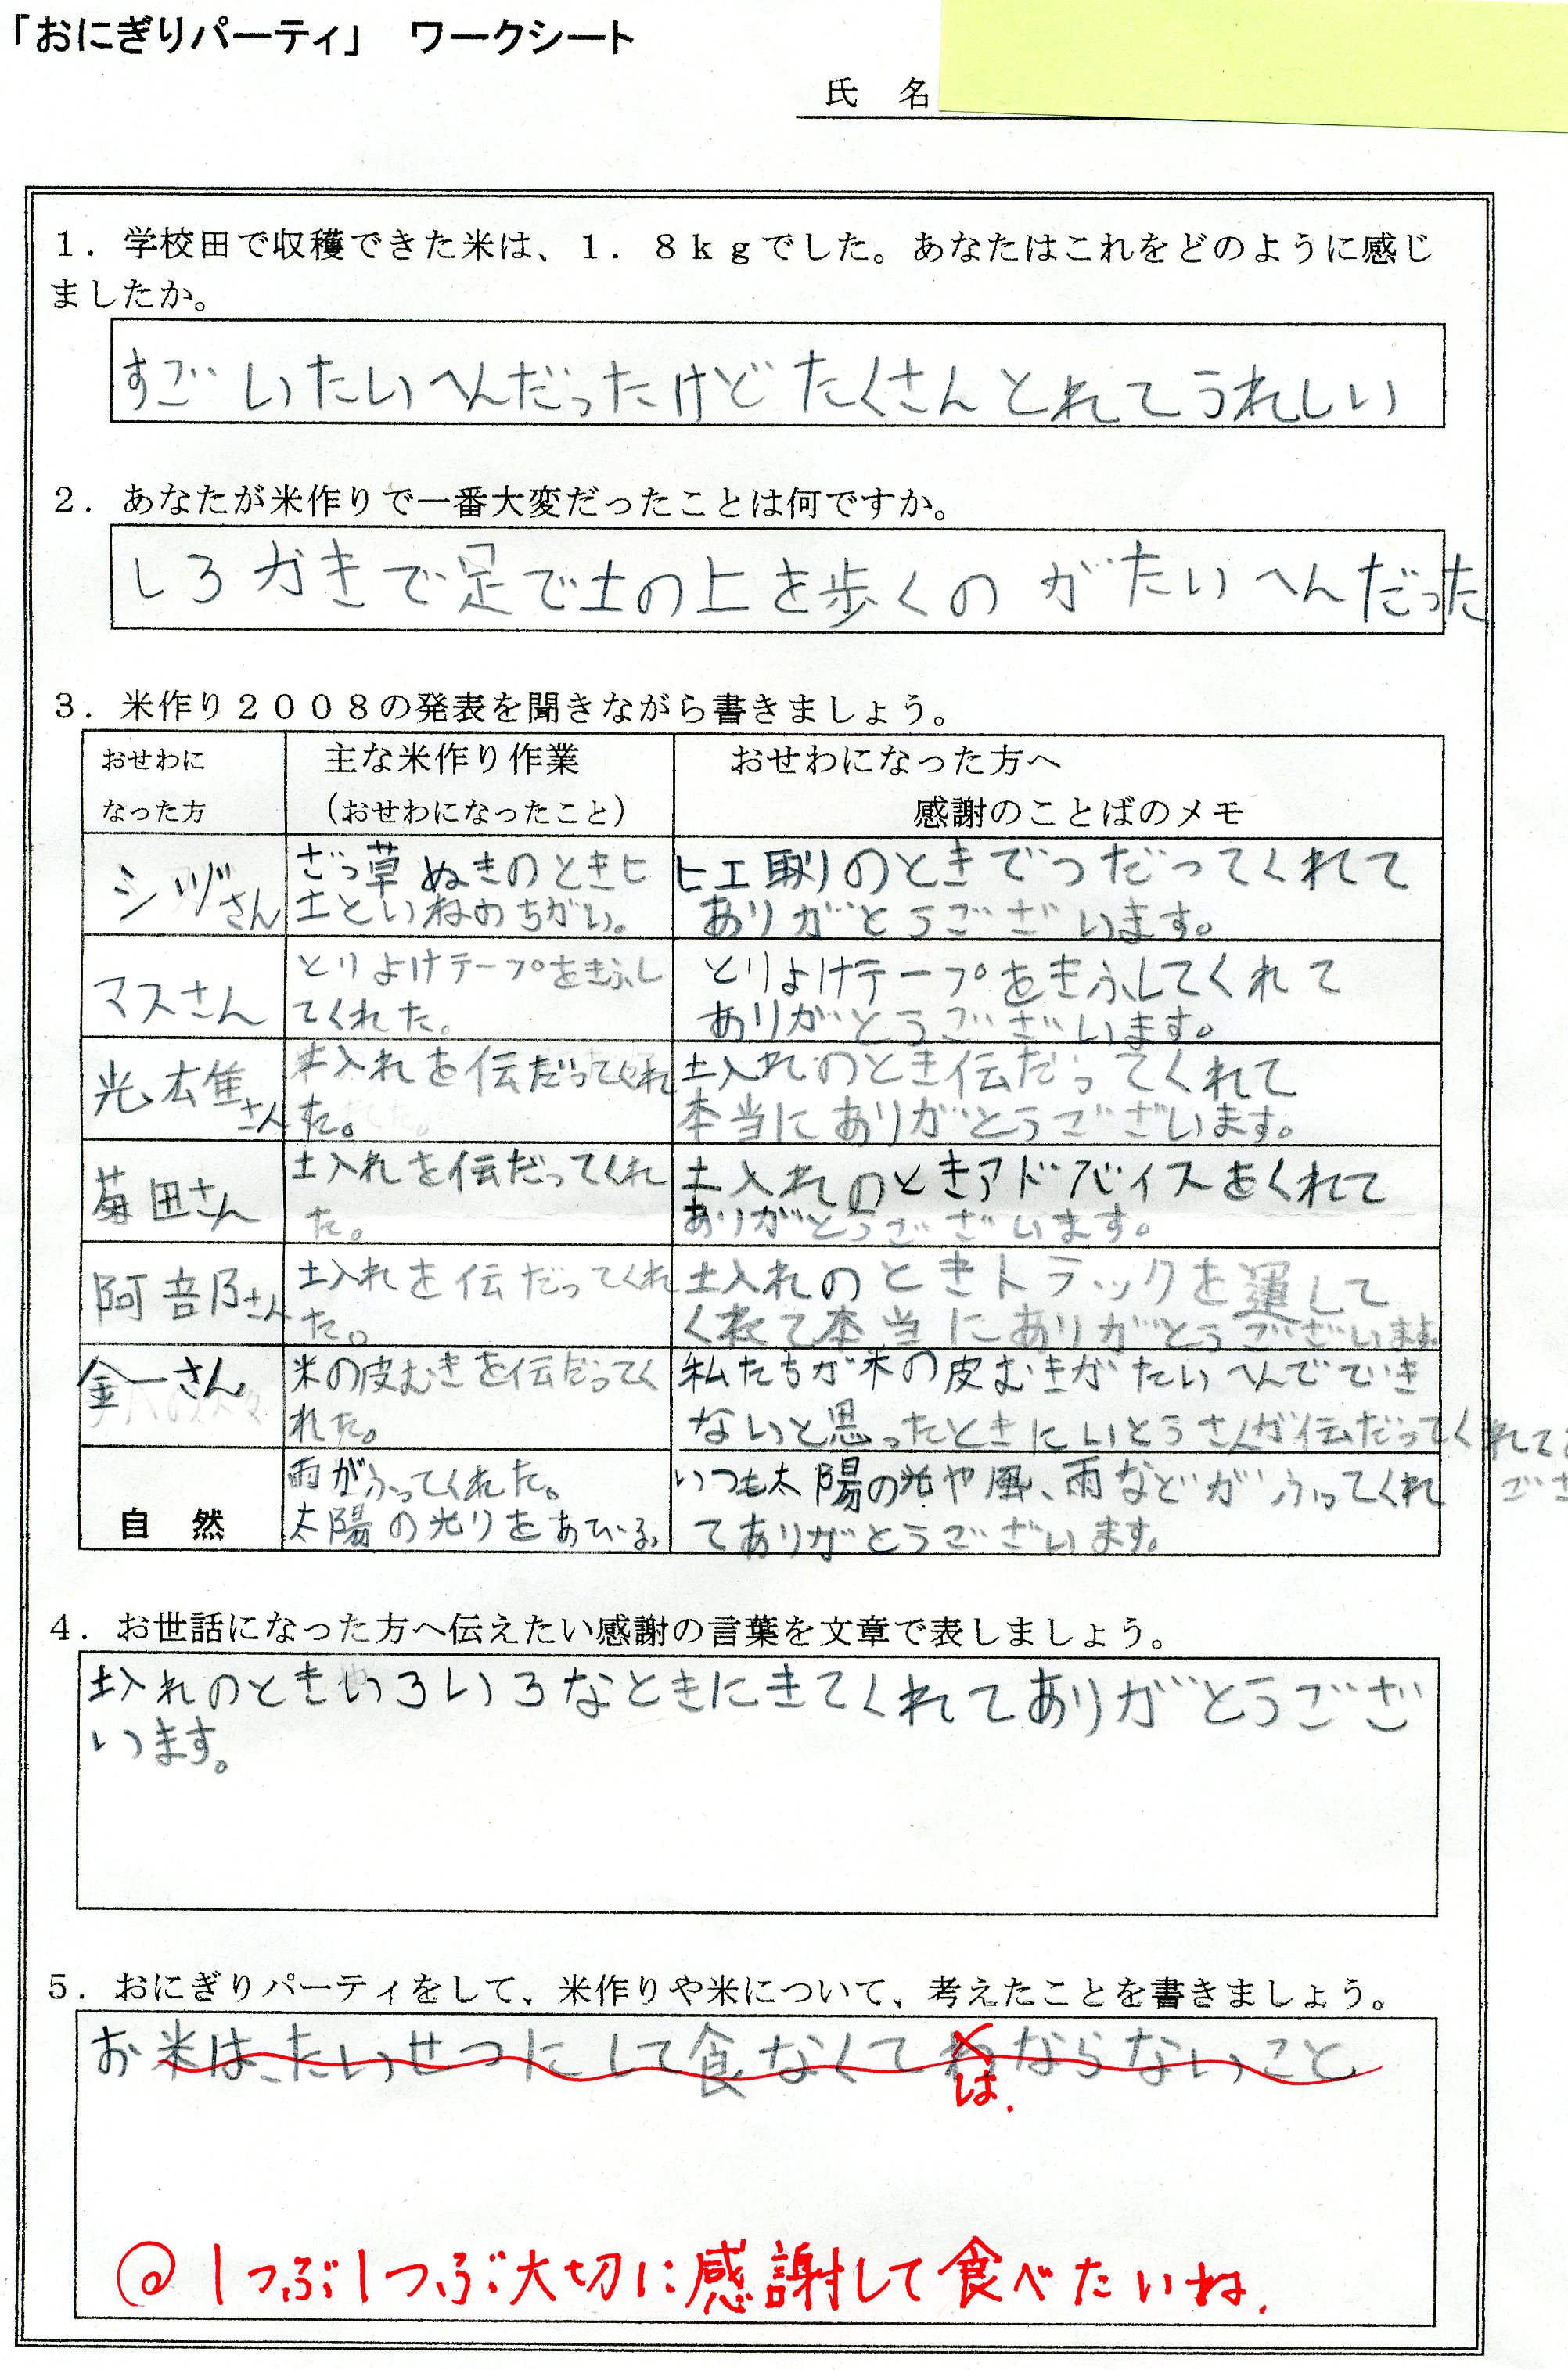 「おにぎりパーティ」 ワークシート
氏 名
1．学校田で収穫できた米は、1．8kgでした。あなたはこれをどのように感じ
ましたか。
すごいたいへんだったけどたくさんとれてうれしい
2．あなたが米作りで一番大変だったことは何ですか。
しろかきで足で土の上を歩くのがたいへんだった
3．米作り2008の発表を聞きながら書きましょう。
おせわに
なった方
主な米作り作業
（おせわになったこと）
おせわになった方へ
感謝のことばのメモ
シヅさん
ざっ草ぬきのときヒ
エといねのちがい。
ヒエ取りのときてつだってくれて
ありがとうございます。
マスさん
とりよけテープをきふし
てくれた。
とりよけテープをきふしてくれて
ありがとうございます。
光雄さん
土入れを伝だってくれ
た。
土入れのとき伝だってくれて
本当にありがとうございます。
菊田さん
土入れを伝だってくれ
た。
土入れのときアドバイスをくれて
ありがとうございます。
阿部さん
土入れを伝だってくれ
た。
土入れのときトラックを運して
くれて本当にありがとうございます。
金一さん
米の皮むきを伝だってく
れた。
私たちが米の皮むきがたいへんででき
ないと思ったときにいとうさんが伝だってくれて
ござ
自 然
雨がふってくれた。
太陽の光りをあびる。
いつも太陽の光や風、雨などがふってくれ
てありがとうございます。
4．お世話になった方へ伝えたい感謝の言葉を文章で表しましょう。
土入れのときいろいろなときにきてくれてありがとうござ
います。
5．おにぎりパーティをして、米作りや米について、考えたことを書きましょう。
お米は、たいせつにして食なくてわならないこと
は.
1つぶ1つぶ大切に感謝して食べたいね.